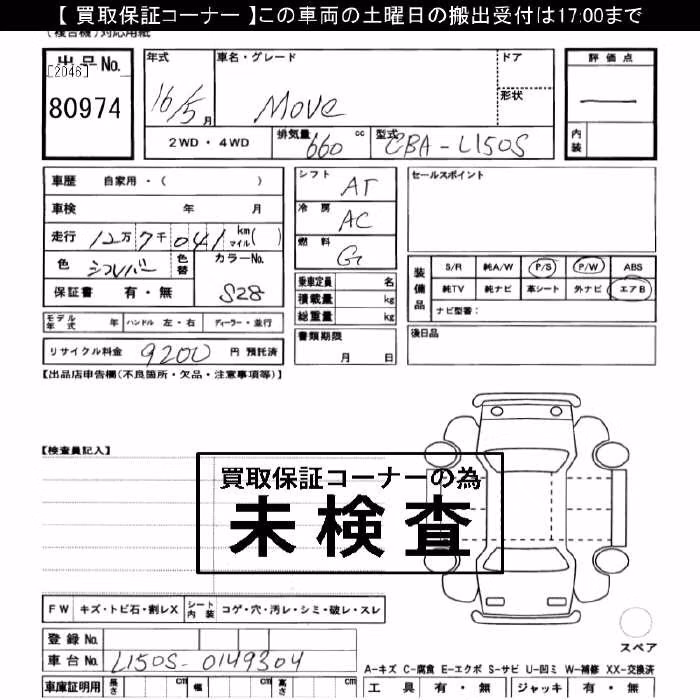 【 買取保証コーナー 】この車両の土曜日の搬出受付は17:00まで
(複合機)対応用紙
出品No.
[2046]
80974
年式
16/5月
車名・グレード
Move
ドア
形状
評価点
内装
2WD ・ 4WD
排気量 660 cc
型式 CBA-L150S
車歴 自家用・( )
車検 年 月
走行 12万7千041 km マイル( )
色 シルバー 色替
カラーNo. S28
保証書 有・無
モデル年式 年 ハンドル 左・右 ディーラー・並行
リサイクル料金 9200 円 預託済
シフト AT
冷房 AC
燃料 G
乗車定員 名
積載量 kg
総重量 kg
書類期限
月 日
セールスポイント
装備品
S/R 純A/W P/S P/W ABS
純TV 純ナビ 革シート 外ナビ エアB
ナビ型番：
後日品
【出品店申告欄(不良箇所・欠品・注意事項等)】
【検査員記入】
買取保証コーナーの為
未検査
FW キズ・トビ石・割レX シート内装 コゲ・穴・汚レ・シミ・破レ・スレ
登録No.
車台No. L150S-0149304
車庫証明用 長さ cm 幅 cm 高さ cm
スペア
A-キズ C-腐食 E-エクボ S-サビ U-凹ミ W-補修 XX-交換済
工具 有・無 ジャッキ 有・無